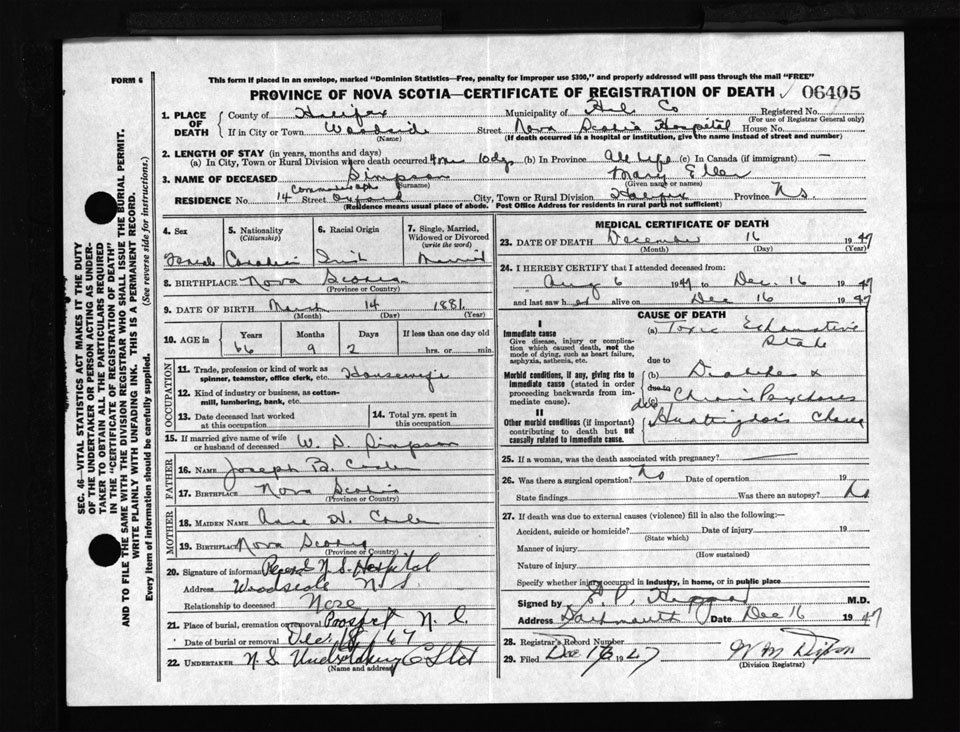 FORM 6
This form if placed in an envelope, marked "Dominion Statistics—Free, penalty for improper use $300," and properly addressed will pass through the mail "FREE"
PROVINCE OF NOVA SCOTIA—CERTIFICATE OF REGISTRATION OF DEATH 06405
1. PLACE OF DEATH
County of Halifax Municipality of Registered No.
(For use of Registrar General only)
If in City or Town Woodside Street Nova Scotia Hospital House No.
(Name) (If death occurred in a hospital or institution, give the name instead of street and number)
2. LENGTH OF STAY (in years, months and days)
(a) In City, Town or Rural Division where death occurred 4 mos 10 dys (b) In Province All Life (c) In Canada (if immigrant) —
3. NAME OF DECEASED Simpson Mary Ellen
(Surname) (Given name or names)
RESIDENCE No. 14 Street Oxford City, Town or Rural Division Halifax Province N.S.
(Residence means usual place of abode. Post Office Address for residents in rural parts not sufficient)
4. Sex 5. Nationality (Citizenship) 6. Racial Origin 7. Single, Married, Widowed or Divorced (write the word)
Female Canadian Married
8. BIRTHPLACE Nova Scotia
(Province or Country)
9. DATE OF BIRTH March 14 1881
(Month) (Day) (Year)
10. AGE in Years Months Days If less than one day old
66 9 2 hrs. or min.
OCCUPATION
11. Trade, profession or kind of work as spinner, teamster, office clerk, etc. Housewife
12. Kind of industry or business, as cotton-mill, lumbering, bank, etc.
13. Date deceased last worked at this occupation 14. Total yrs. spent in this occupation
15. If married give name of wife or husband of deceased W. D. Simpson
FATHER
16. NAME Joseph B.
17. BIRTHPLACE Nova Scotia
(Province or Country)
MOTHER
18. MAIDEN NAME
19. BIRTHPLACE Nova Scotia
(Province or Country)
20. Signature of informant Records N.S. Hospital
Address Woodside N.S.
Relationship to deceased None
21. Place of burial, cremation or removal Prospect N.S.
Date of burial or removal Dec. 18/47
22. UNDERTAKER N.S. Undertaking Co Ltd
(Name and address)
MEDICAL CERTIFICATE OF DEATH
23. DATE OF DEATH December 16 1947
(Month) (Day) (Year)
24. I HEREBY CERTIFY that I attended deceased from:
Aug 6 1947 to Dec. 16 1947
and last saw her alive on Dec 16 1947
CAUSE OF DEATH
I
Immediate cause
Give disease, injury or complication which caused death, not the mode of dying, such as heart failure, asphyxia, asthenia, etc.
(a) Toxic Exhaustive State
due to
Morbid conditions, if any, giving rise to immediate cause (stated in order proceeding backwards from immediate cause).
(b) Diabetes &
due to
Chronic Psychoses
II
Other morbid conditions (if important) contributing to death but not causally related to immediate cause.
(c) Huntington's Chorea
25. If a woman, was the death associated with pregnancy? —
26. Was there a surgical operation? No Date of operation 19
State findings Was there an autopsy? No
27. If death was due to external causes (violence) fill in also the following:—
Accident, suicide or homicide? Date of injury 19
(State which)
Manner of injury
(How sustained)
Nature of injury
Specify whether injury occurred in industry, in home, or in public place
Signed by M.D.
Address Dartmouth Date Dec 16 1947
28. Registrar's Record Number
29. Filed Dec 1947 W M Dixon
(Division Registrar)
SEC. 46—VITAL STATISTICS ACT MAKES IT THE DUTY
OF THE UNDERTAKER OR PERSON ACTING AS UNDER-
TAKER TO OBTAIN ALL THE PARTICULARS REQUIRED
IN THE "CERTIFICATE OF REGISTRATION OF DEATH"
AND TO FILE THE SAME WITH THE DIVISION REGISTRAR WHO SHALL ISSUE THE BURIAL PERMIT.
WRITE PLAINLY WITH UNFADING INK. THIS IS A PERMANENT RECORD.
Every item of information should be carefully supplied. (See reverse side for instructions.)